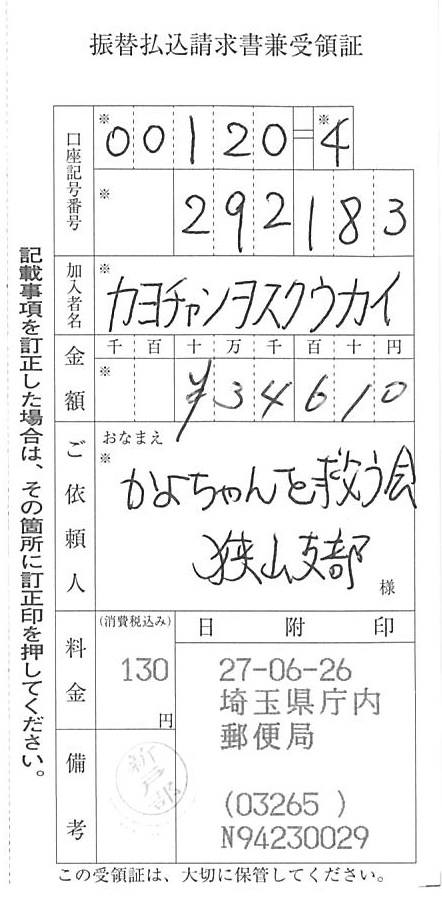 振替払込請求書兼受領証
口座記号番号
※ 00120=※4
※ 292183
加入者名
※
カヨチャンヲスクウカイ
金額
千 百 十 万 千 百 十 円
※ ¥34610
ご依頼人
おなまえ
※
かよちゃんを救う会
狭山支部
様
料金
(消費税込み)
130
円
日 附 印
27-06-26
埼玉県庁内
郵便局
(03265 )
N94230029
備考
この受領証は、大切に保管してください。
記載事項を訂正した場合は、その箇所に訂正印を押してください。